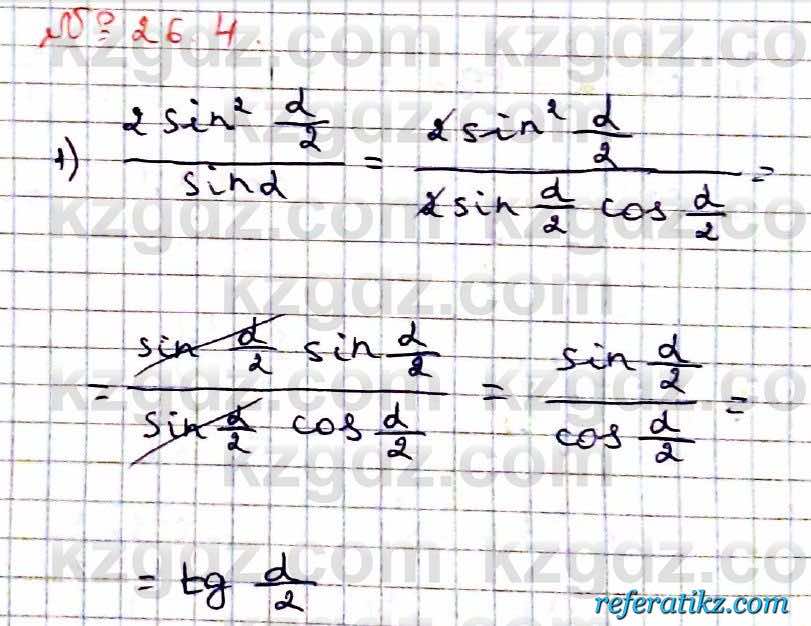 № 26.4.
1) 2 sin² α/2 / sin α = 2 sin² α/2 / 2 sin α/2 cos α/2 =
= sin α/2 sin α/2 / sin α/2 cos α/2 = sin α/2 / cos α/2 =
= tg α/2
kzgdz.com
referatikz.com